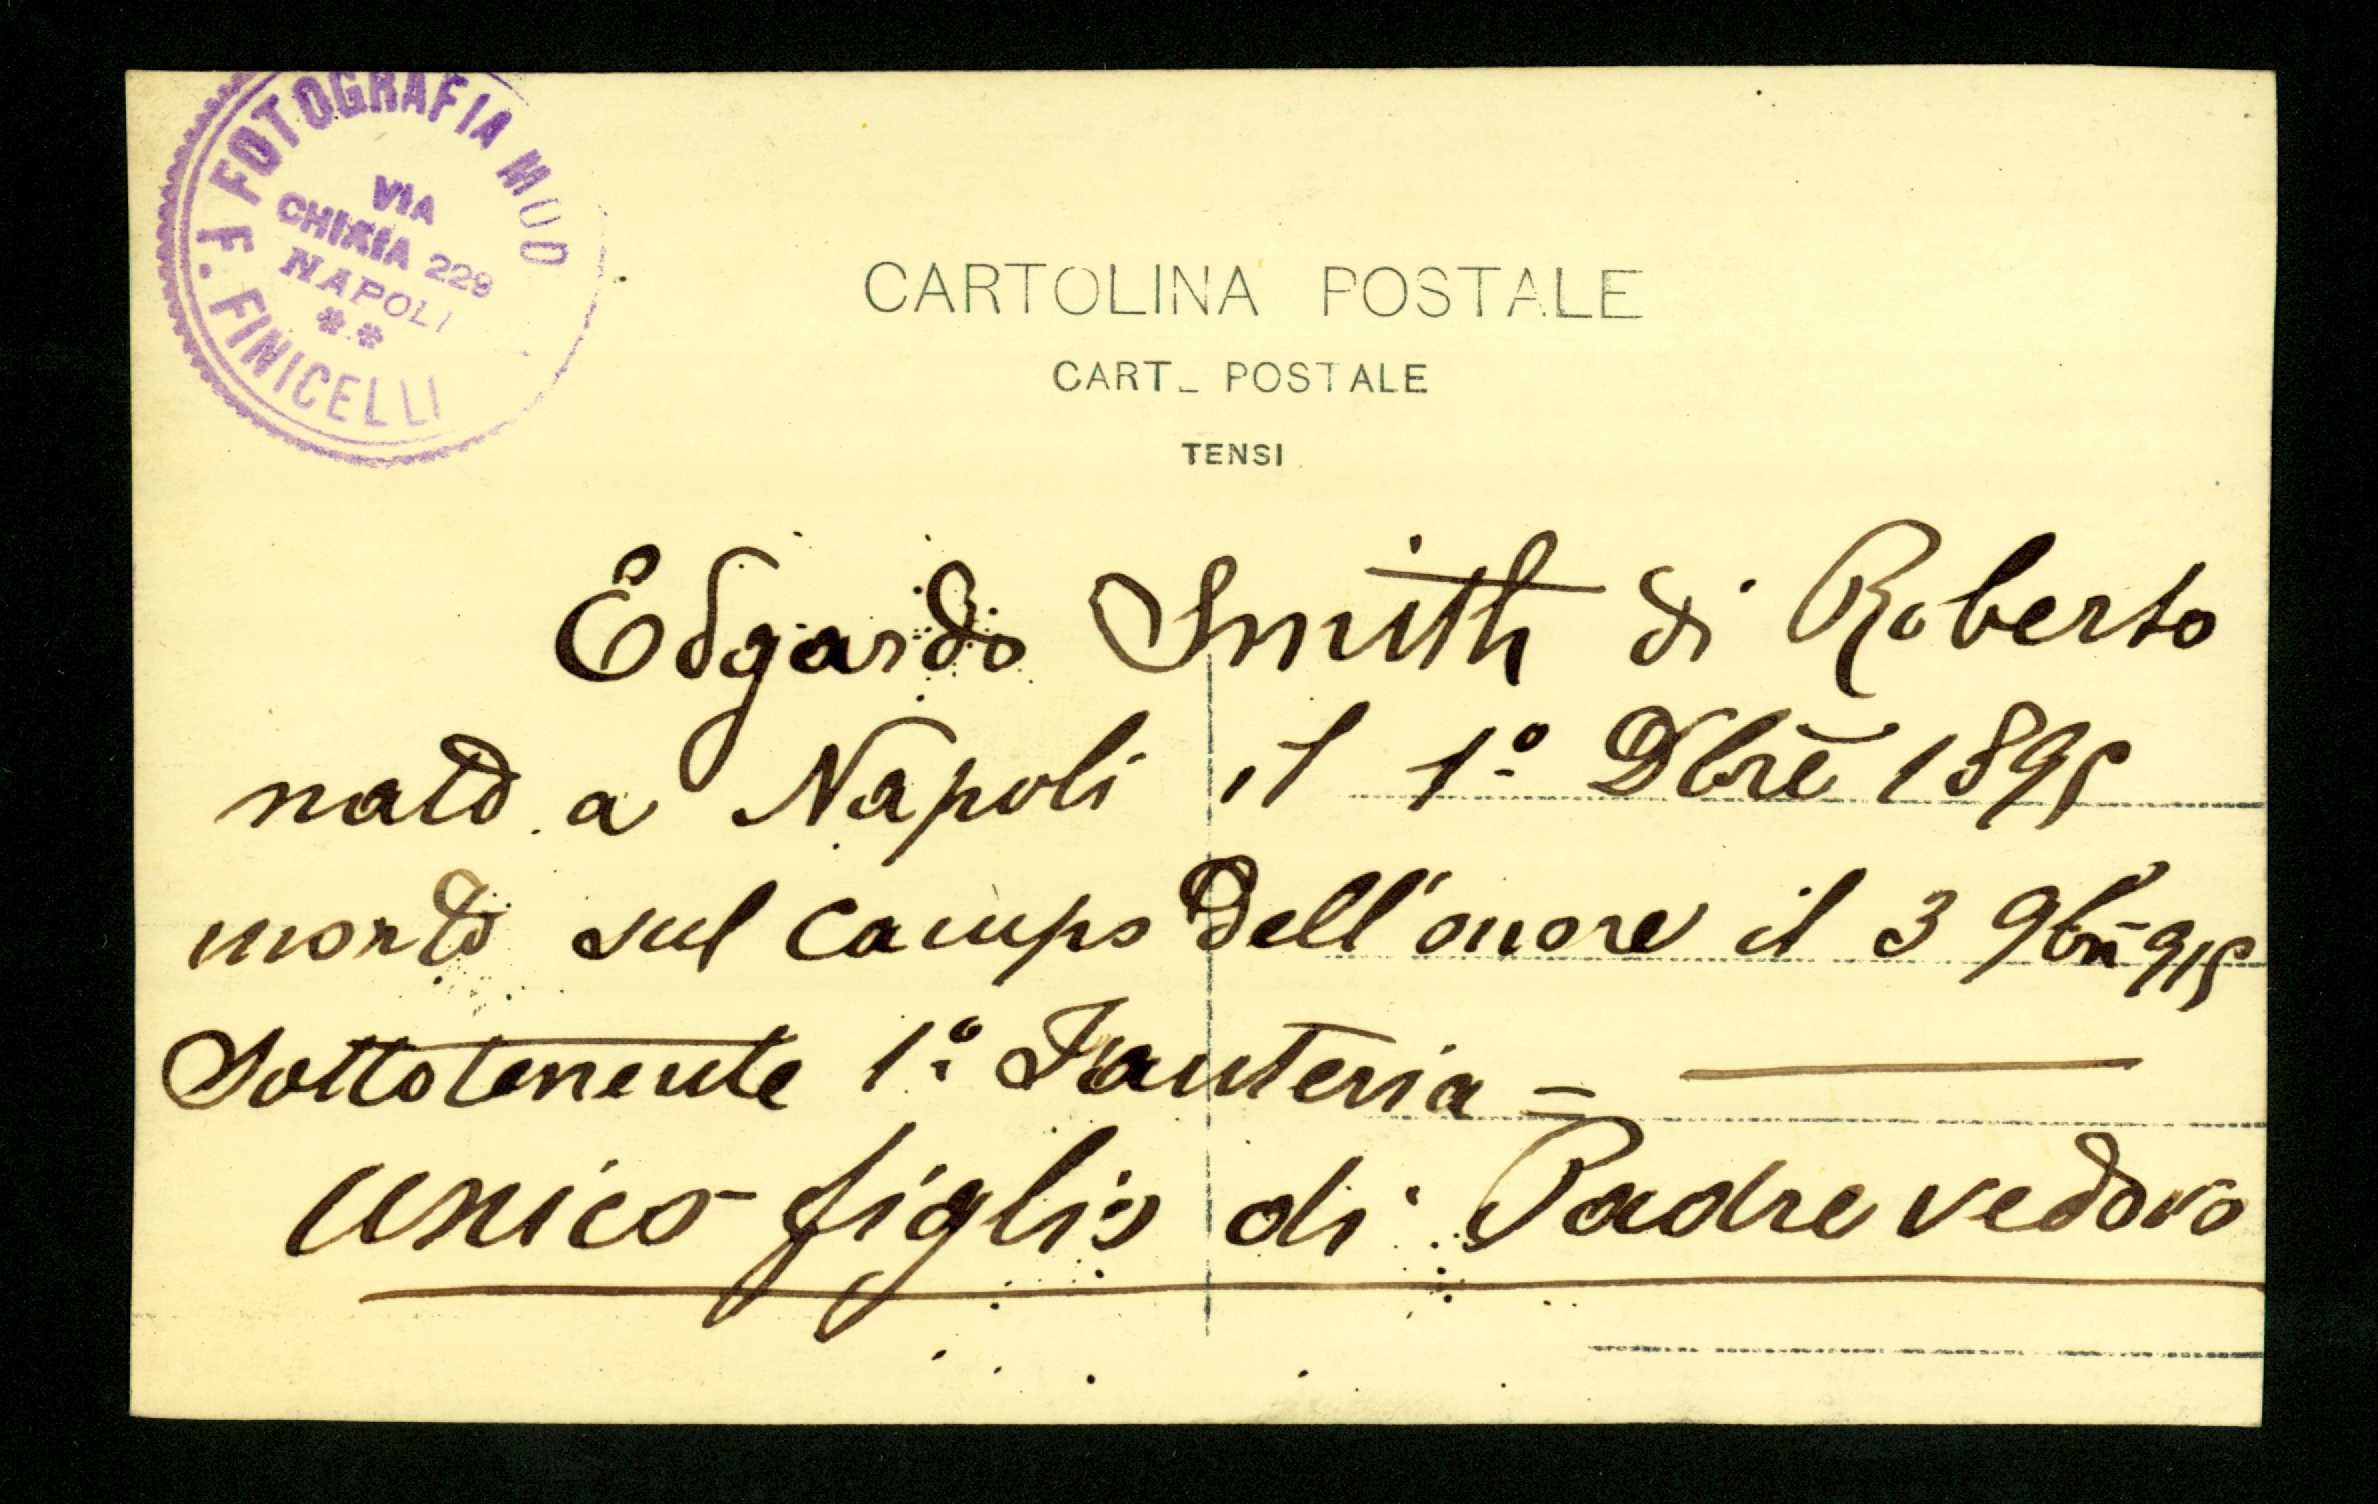 FOTOGRAFIA MUO
F. FINICELLI
VIA
CHIAIA 229
NAPOLI
CARTOLINA POSTALE
CART_ POSTALE
TENSI
Edgardo Smith di Roberto
nato a Napoli il 1º Dbrē 1895
morto sul campo dell'onore il 3 9bre 915
Sottotenente 1º Fanteria =
unico figlio di Padre vedovo